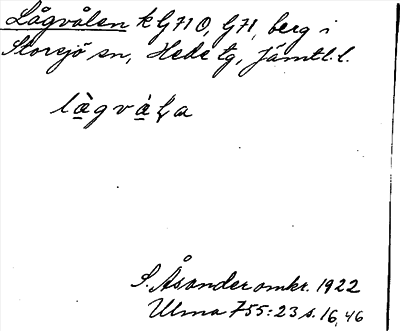 Lågvålen k G710, G71, berg i
Storsjö sn, Hede tg, Jämtl. l.
làgvàɫa
S. Åsander omkr. 1922
Ulma 755:23 s. 16, 46